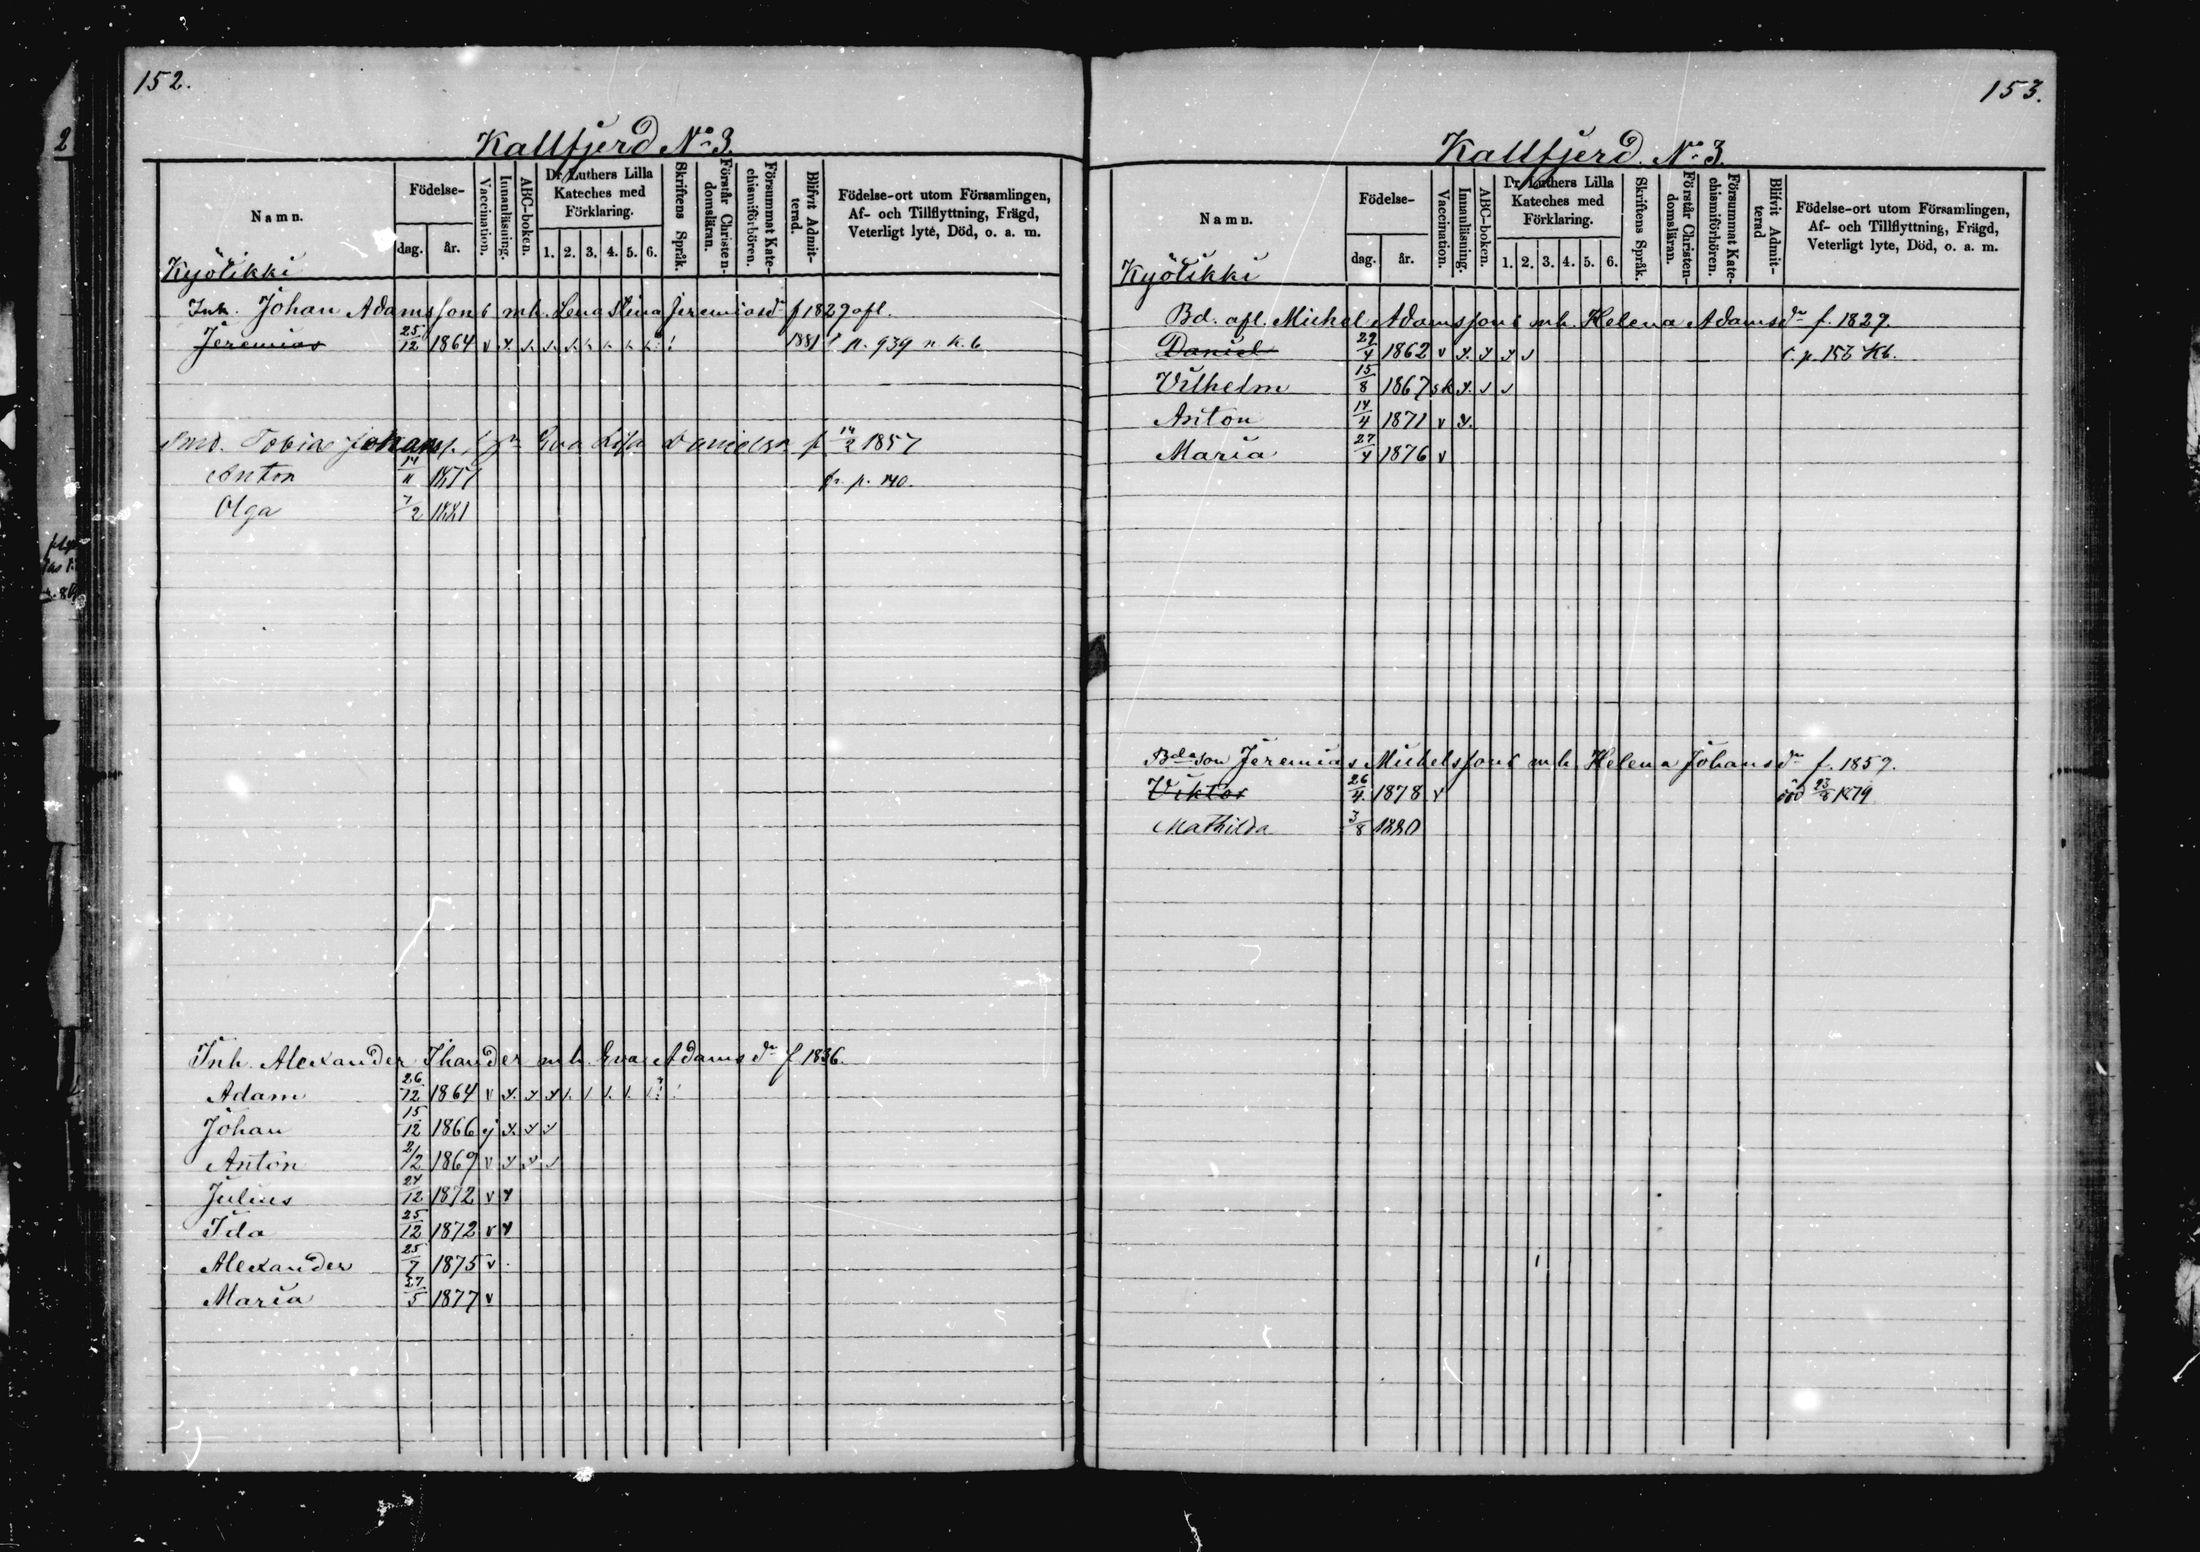 152.
Kallfjerd No 3.
Namn.
Födelse-
dag.
år.
Vaccination.
Innanläsning.
ABC-boken.
Dr Luthers Lilla
Kateches med
Förklaring.
1. 2. 3. 4. 5. 6.
Skriftens Språk.
Förstår Christen-
domsläran.
Försummat Kate-
chismiförhören.
Blifvit Admit-
terad.
Födelse-ort utom Församlingen,
Af- och Tillflyttning, Frägd,
Veterligt lyte, Död, o. a. m.
Kyölikki
Inh. Johan Adamssons mh. Lena Stina Jeremiasdr f 1829 afl.
Jeremias 25/12 1864 v 1881 p. 939 n. K. b
Tobias Johans Eva Lisa Danielsdr f 14/2 1857
Anton 14/11 1877 fr. p. 140.
Olga 7/2 1881
Inh. Alexander Thander mh. Eva Adamsdr f 1836.
Adam 26/12 1864 v
Johan 15/12 1866 j
Anton 2/2 1869 v
Julius 24/12 1872 v
Ida 25/12 1872 v
Alexander 25/7 1875 v
Maria 27/5 1877 v
153.
Kallfjerd. No 3.
Namn.
Födelse-
dag.
år.
Vaccination.
Innanläsning.
ABC-boken.
Dr Luthers Lilla
Kateches med
Förklaring.
1. 2. 3. 4. 5. 6.
Skriftens Språk.
Förstår Christen-
domsläran.
Försummat Kate-
chismiförhören.
Blifvit Admit-
terad
Födelse-ort utom Församlingen,
Af- och Tillflyttning, Frägd,
Veterligt lyte, Död, o. a. m.
Kyölikki
Bd. afl. Michel Adamssons mh. Helena Adamsdr f. 1829.
Daniel 29/4 1862 v p 153 Kb.
Vilhelm 15/8 1867 sk
Anton 14/4 1871 v
Maria 27/4 1876 v
Bdeson Jeremias Michelssons mh. Helena Johansdr f. 1859.
Viktor 26/4 1878 v död 23/8 1879
Mathilda 3/8 1880